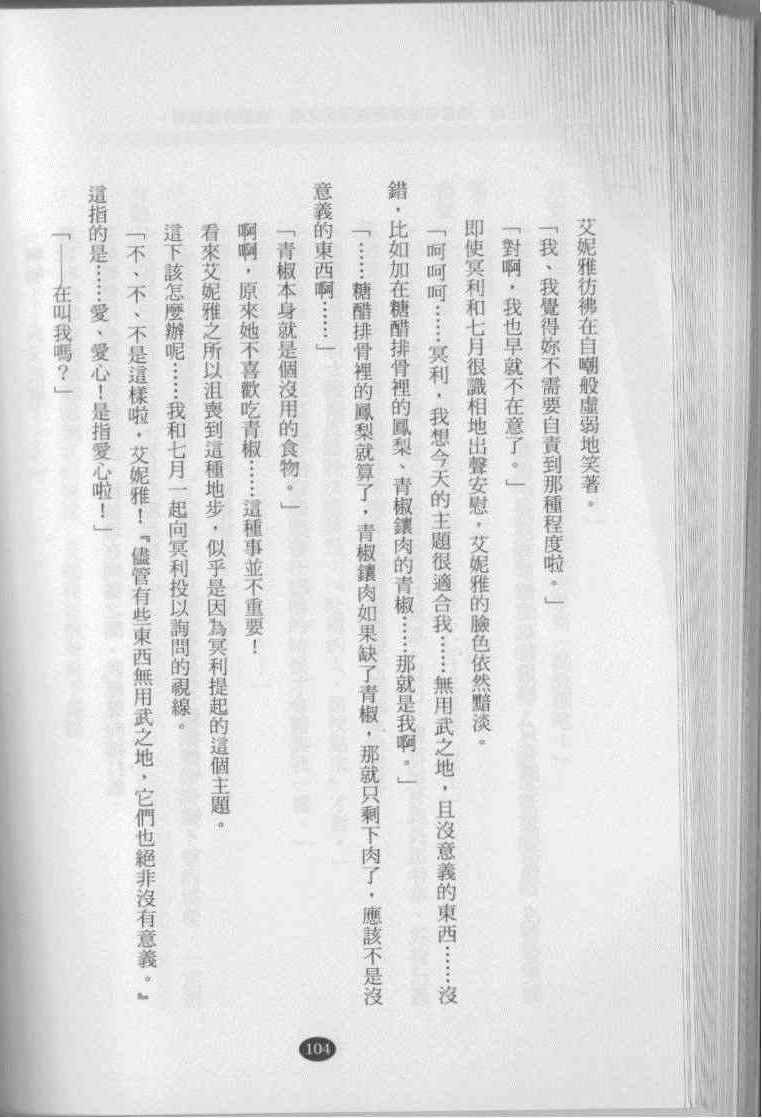 艾妮雅彷彿在自嘲般虛弱地笑著。
「我、我覺得妳不需要自責到那種程度啦。」
「對啊，我也早就不在意了。」
即使冥利和七月很識相地出聲安慰，艾妮雅的臉色依然黯淡。
「呵呵呵……冥利，我想今天的主題很適合我……無用武之地，且沒意義的東西……沒
錯，比如加在糖醋排骨裡的鳳梨、青椒鑲肉的青椒……那就是我啊。」
「……糖醋排骨裡的鳳梨就算了，青椒鑲肉如果缺了青椒，那就只剩下肉了，應該不是沒
意義的東西啊……」
「青椒本身就是個沒用的食物。」
啊啊，原來她不喜歡吃青椒……這種事並不重要！
看來艾妮雅之所以沮喪到這種地步，似乎是因為冥利提起的這個主題。
這下該怎麼辦呢……我和七月一起向冥利投以詢問的視線。
「不、不、不是這樣啦，艾妮雅！『儘管有些東西無用武之地，它們也絕非沒有意義。』
這指的是……愛、愛心！是指愛心啦！」
「——在叫我嗎？」
104